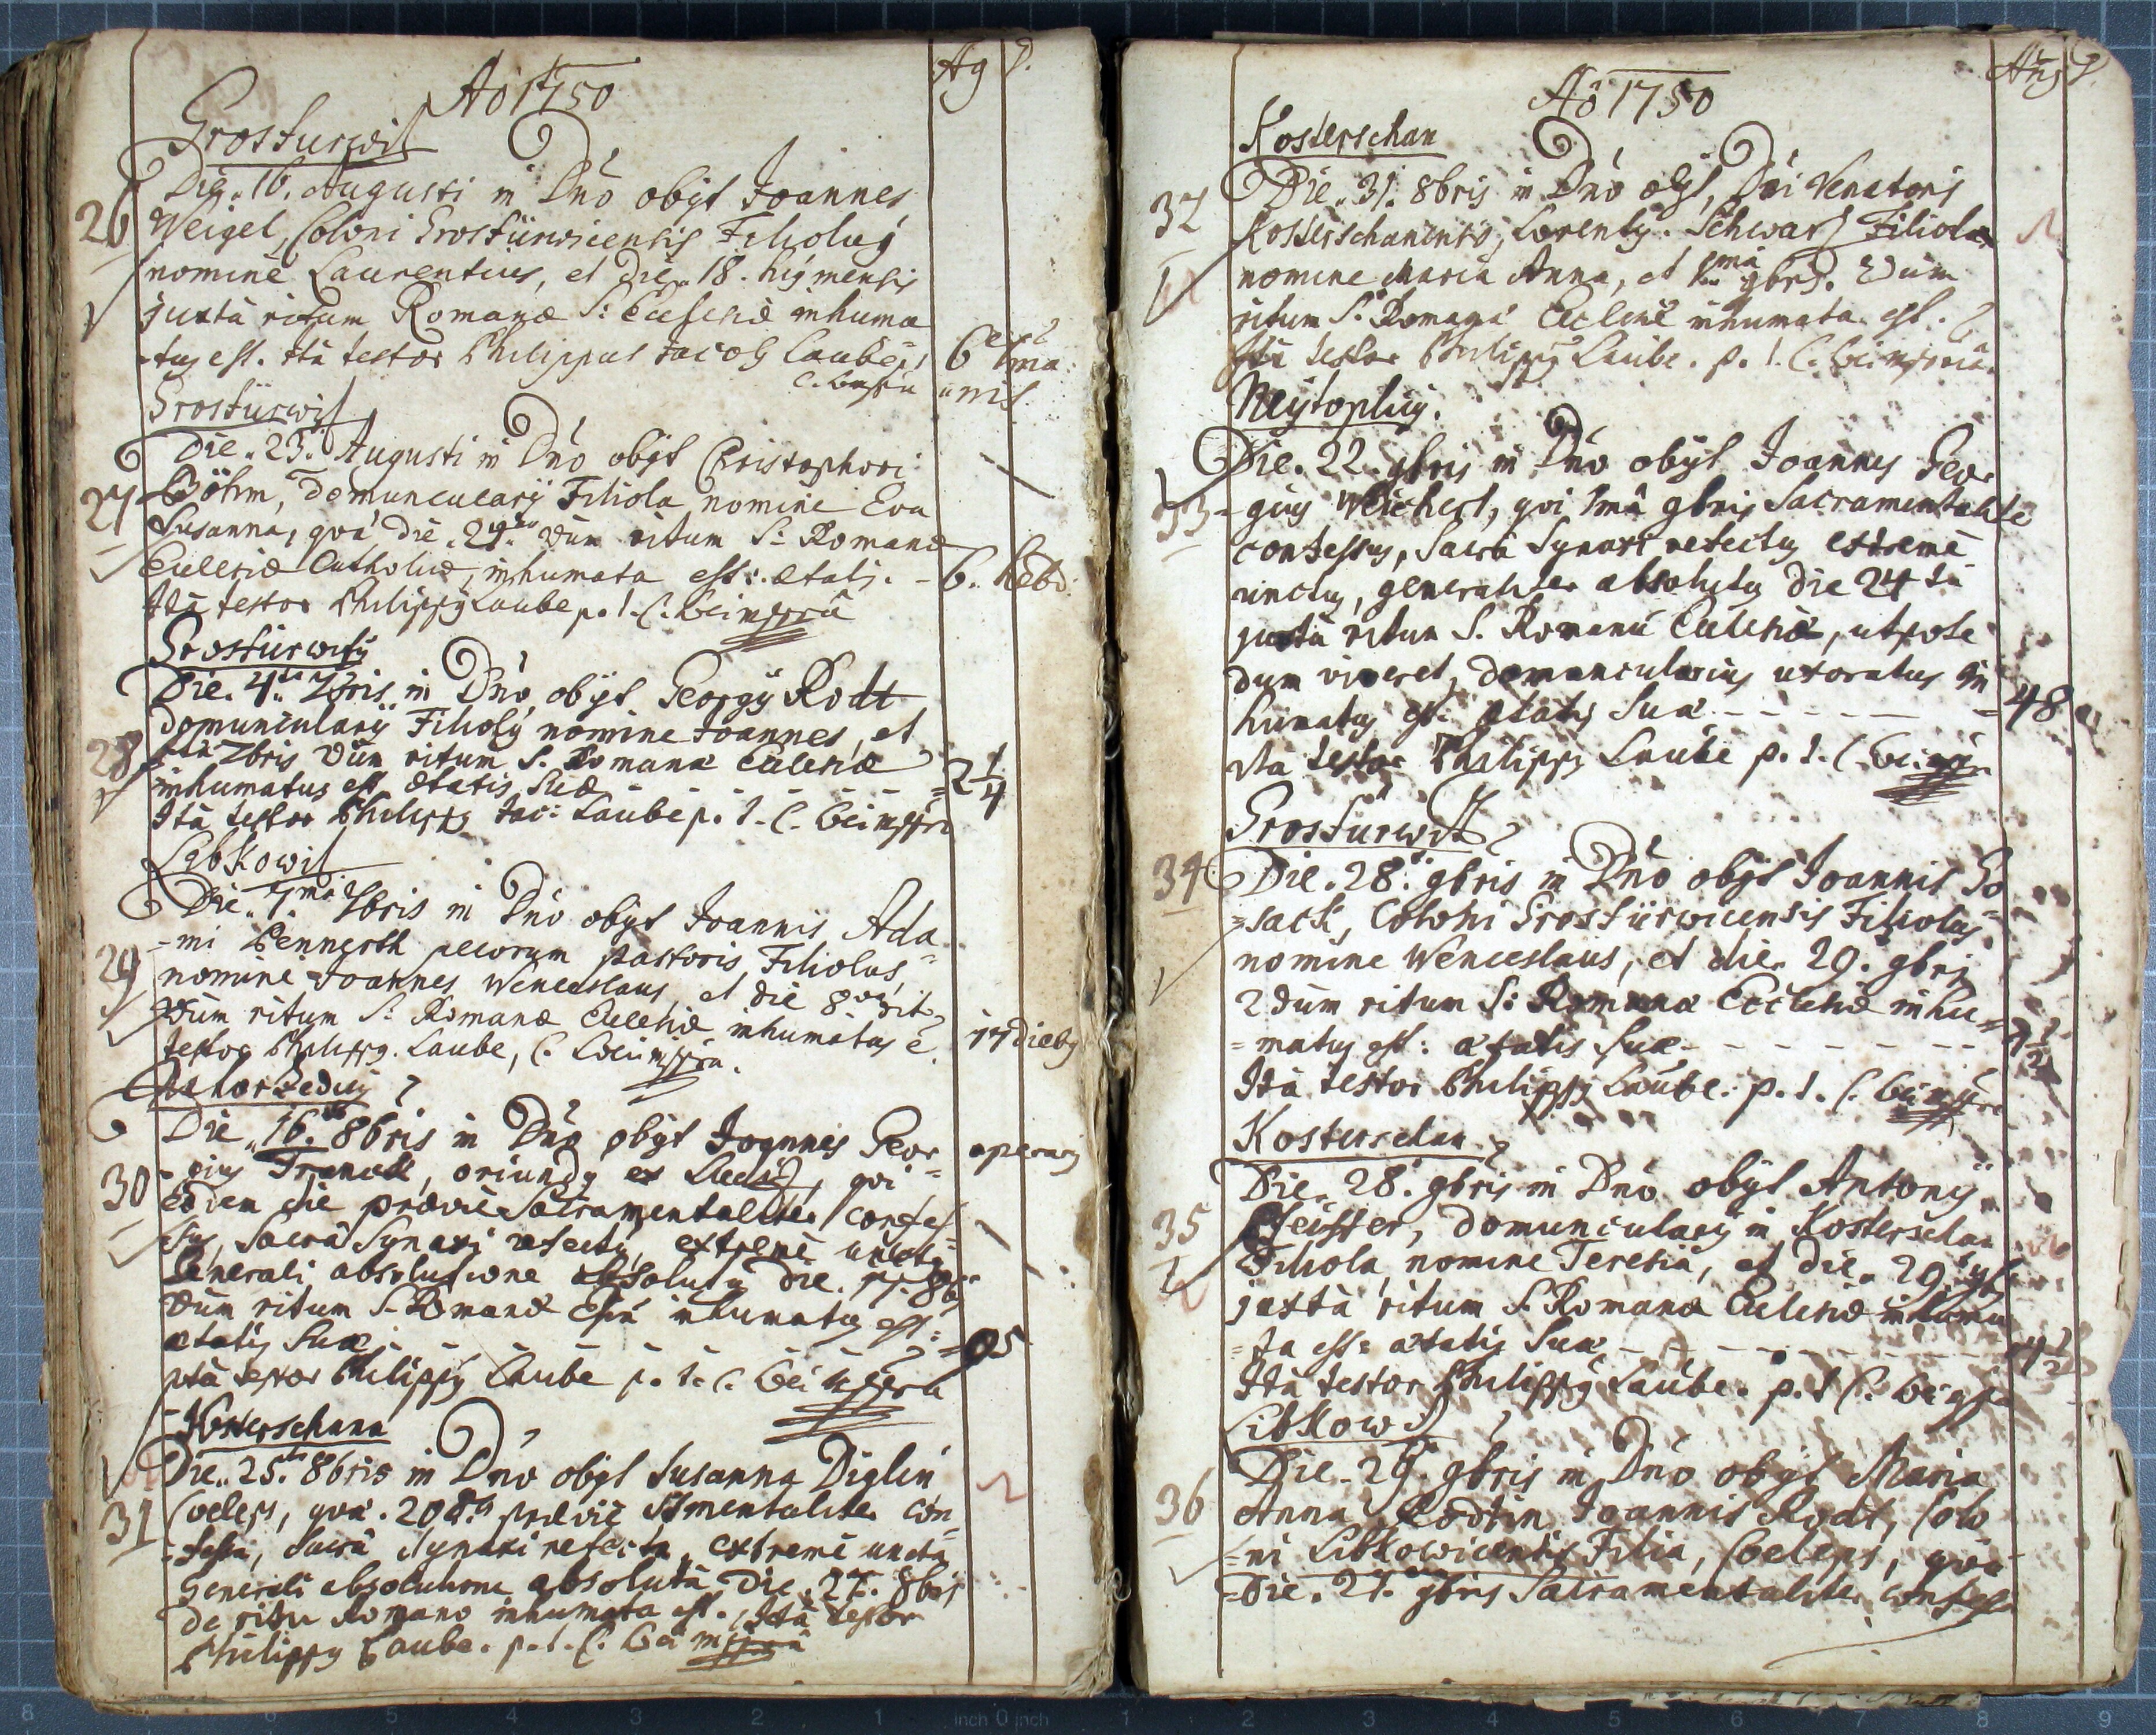 Ao 1750
Grosturwitz
Die 16. Augusti in Dno obijt Joannes
26 Weigel, Coloni Grostürwicensis Filiolus
nomine Laurentius, et die 18. hujus mensis
juxta ritum Romanæ S: Ecclesiæ inhuma
-tus est. Ita testor Philippus Jacob Laube
6 tma
Grostürwitz
Die 23. Augusti in Dno obijt Christophori
27 Böhm, domuncularij Filiola nomine Eva
Susanna, quæ die 24. 2dum ritum S: Romanæ
Ecclesiæ Catholicæ, inhumata est: ætatis - 6. hebd:
Ita testor Philippus Laube p. t. C. Loci mppria
Grosturwitz
Die 4ta 7bris in Dno obijt Georgij Rodt
domuncularij Filiolus nomine Joannes, et
28 7bris 2dum ritum S. Romanæ Ecclesiæ
inhumatus est ætatis suæ - - - 2 1/4
Ita testor Philippus Jac: Laube p. t. C. Loci mppria
Libkowitz
Die 7ma 7bris in Dno obijt Joannis Ada
-mi pecorum pastoris, Filiolus,
29 nomine Joannes Wenceslaus, et die 8va
2dum ritum S. Romanæ Ecclesiæ inhumatus e. 17 dieb9
testor Philippus Laube, C. Loci mppria.
Die 16. 8bris in Dno obijt Joannes Geor
30 -gius oriundus ex qui
eodem die prævie Sacramentaliter confes
-sus, Sacra Synaxi refectus, extreme unctus
Generali absolutione absolutus die 8bris
2dum ritum S. Romanæ inhumatus est:
ætatis suæ
Ita testor Philippus Laube p. t. C. Loci mppria
Kosterschana
Die 25. 8bris in Dno obijt Susanna Diglin
31 Coeleps, quæ 20 prævie Stmentaliter con
-fessa, Sacra Synaxi refecta, extreme uncta
Generali absolutione absoluta die 27. 8bris
de ritu Romano inhumata est. Ita testor
Philippus Laube. p. t. C. Loci mppria
Ao 1750
Kosterschan
Die 31. 8bris in Dno obijt, Dni Venatoris
32 Kosterschanensis, Lorentz Schwartz Filiola
nomine Maria Anna, et 1ma 9bris. 2dum
ritum S. Romanæ Ecclesiæ inhumata est.
Ita testor Philippus Laube. p. t. C. Loci mppria
Die 22. 9bris in Dno obijt Joannes Geor
33 -gius Weichert, qui 1ma 9bris Sacramentalite
confessus, Sacra Synaxi refectus extreme
unctus, generaliter absolutus die 24ta
juxta ritum S. Romanæ Ecclesiæ, utpote
dum viveret, domuncularius uxoratus in
humatus est: ætatis suæ - - - - 48
Ita testor Philippus Laube p. t. C. Loci mppria
Grosturwitz
34 Die 28. 9bris in Dno obijt Joannis
-sack, Coloni Grostürwicensis Filiolus
nomine Wenceslaus, et die 29. 9bris
2dum ritum S: Romanæ Ecclesiæ inhu
-matus est: ætatis suæ - - - -
Ita testor Philippus Laube. p. t. C. Loci mppria
Kosterschan
Die 28. 9bris in Dno obijt Antonij
35 Pfeiffer, domuncularij in Kosterschan
Filiola nomine Teresia, et die 29. 9bris
juxta ritum S. Romanæ Ecclesiæ inhuma
-ta est: ætatis suæ - - - -
Ita testor Philippus Laube. p. t. C. Loci
Libkowitz
Die 29. 9bris in Dno obijt Maria
36 Anna Rodtin Joannis Rodt, Colo
-ni Libkowicensis Filia, Coeleps, quæ
die 27. 9bris Sacramentaliter confessa